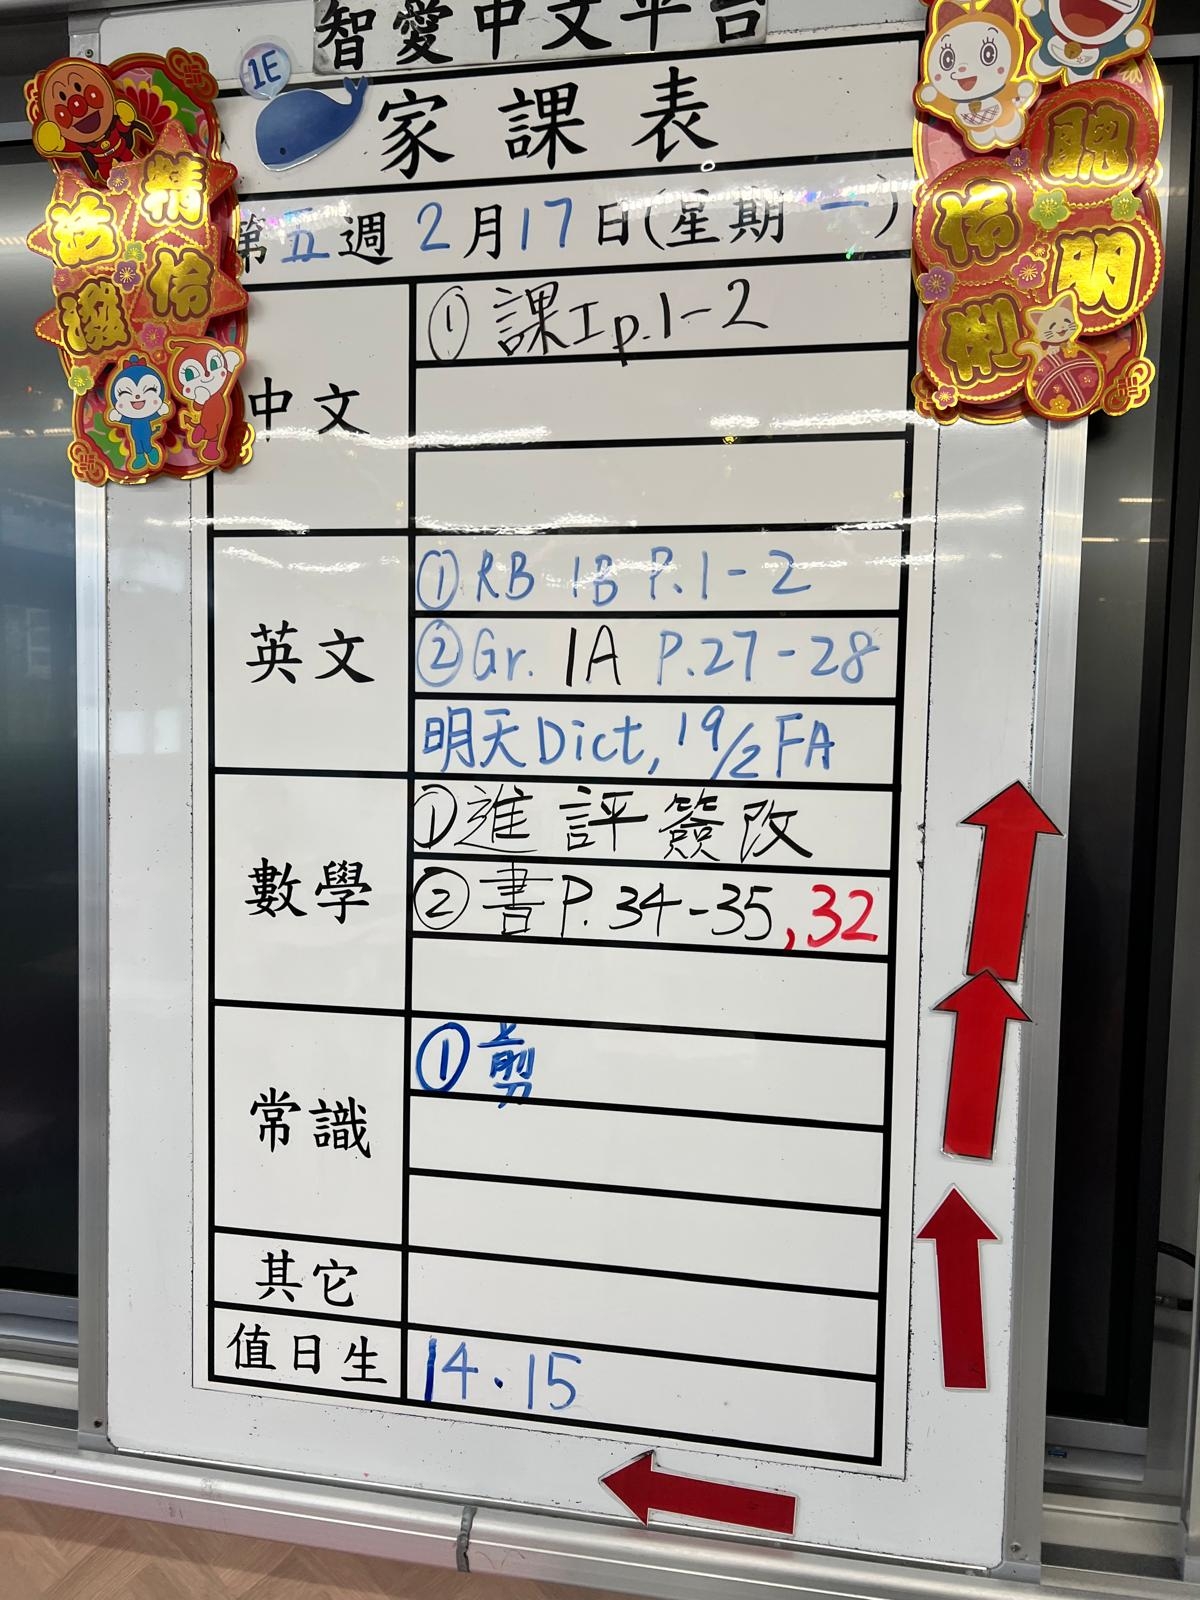 智愛中文平台
1E
家課表
第五週 2月17日(星期一)
精伶活潑
聰明伶俐
中文
① 課工p.1-2
英文
① RB 1B P.1-2
② Gr. 1A P.27-28
明天Dict, 19/2 FA
數學
① 進評簽改
② 書P.34-35,32
常識
① 剪
其它
值日生
14.15